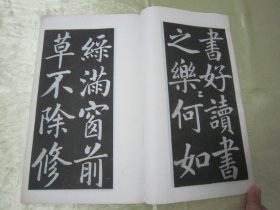 書好讀書
之樂〻何如
綠滿窗前
草不除修